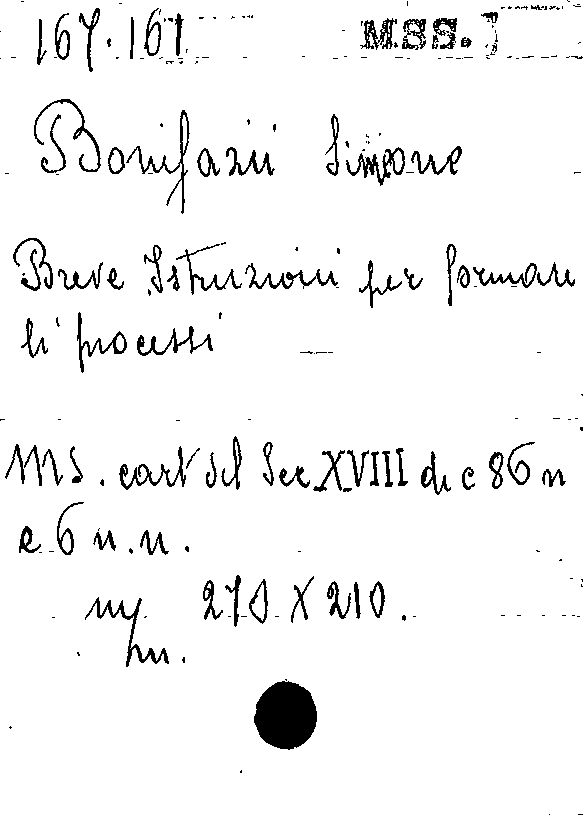 167.167 MSS.
Bonifazii Simeone
Breve Istruzioni per formare
li processi
MS. cart del Sec XVIII di c 86 n
e 6 n.n.
270 X 210.